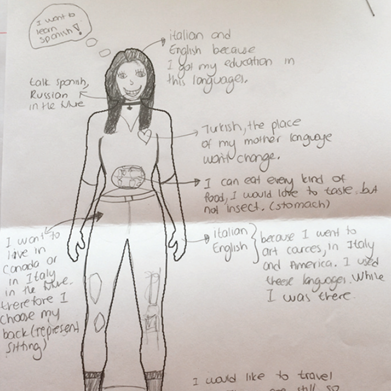 I want to
learn
Spanish!
italian and
English because
I got my education in
this languages.
talk Spanish,
Russian
in the future.
Turkish, the place
of my mother language
won't change.
I can eat every kind of
food, I would love to taste, but
not insect. (stomach)
I want to
live in
Canada or
in Italy
in the future.
therefore I
choose my
back (represent
sitting)
Italian
English
because I went to
art cources, in Italy
and America. I used
these languages while
I was there.
I would like to travel